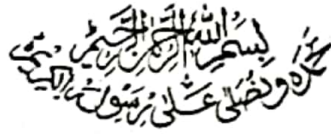 بِسْمِ اللّٰهِ الرَّحْمٰنِ الرَّحِيْمِ
نحمده و نصلى على رسوله الكريم